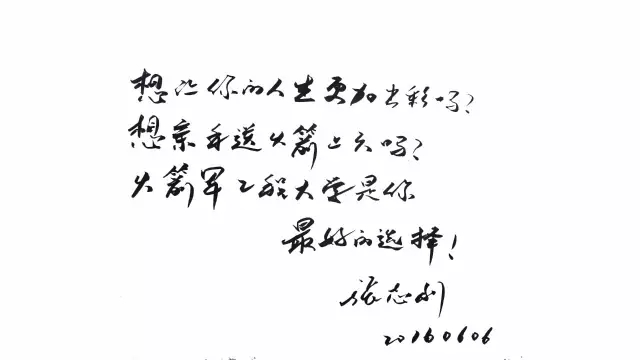 想让你的人生更加出彩吗？
想亲手送火箭上天吗？
火箭军工程大学是你
最好的选择！
张志利
20160606